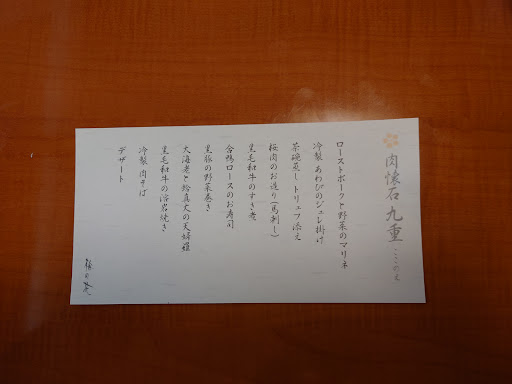 肉懐石 九重 ここのえ
ローストポークと野菜のマリネ
冷製 あわびのジュレ掛け
茶碗蒸し トリュフ添え
桜肉のお造り(馬刺し)
黒毛和牛のすき煮
合鴨ロースのお寿司
黒豚の野菜巻き
大海老と絵真丈の天婦羅
黒毛和牛の溶岩焼き
冷製 肉そば
デザート